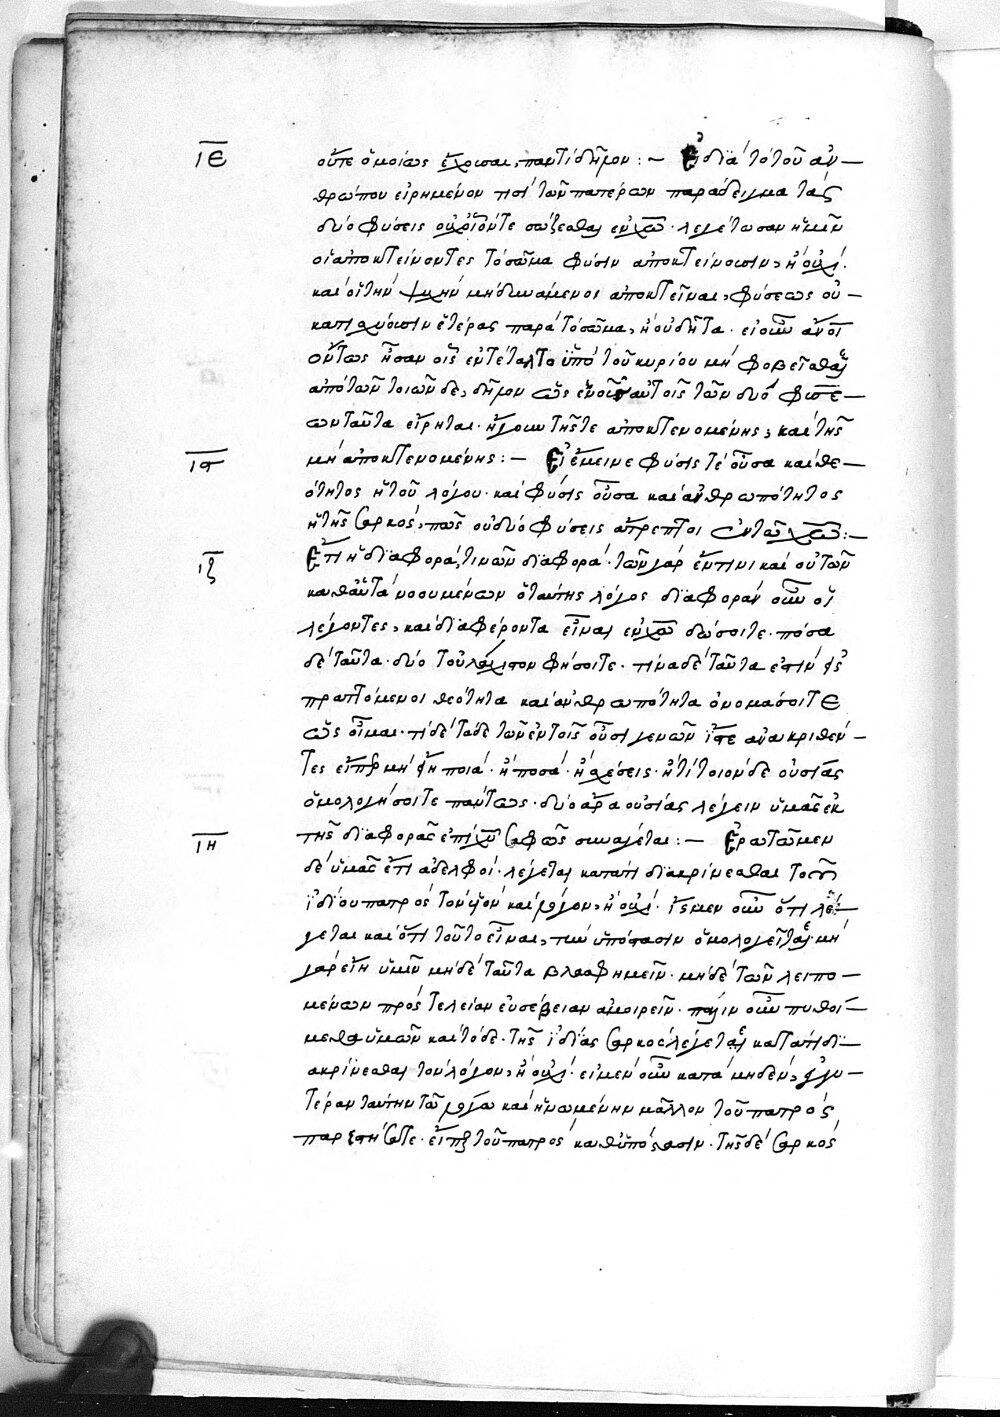 ιε οὔτε ὁμοίως ἔχουσαι, παντὶ δῆλον :— Εἰ διὰ τὸ τοῦ ἀν—
θρώπου εἰρημένον τισὶ τῶν πατέρων παράδειγμα τὰς
δύο φύσεις οὐχ οἷόν τε σώζεσθαι ἐν χω· λεγέτωσαν ἡμῖν
οἱ ἀποκτείνοντες τὸ σῶμα φύσιν ἀποκτείνουσιν, ἢ οὐχί·
καὶ οἱ τὴν ψυχὴν μὴ δυνάμενοι ἀποκτεῖναι, φύσεως οὐ—
κατισχύουσιν ἑτέρας παρὰ τὸ σῶμα, ἢ οὐ δῆτα· εἰ οὖν ἄνοι
ὄντως ἦσαν οἷς ἐντέταλτο ὑπὸ τοῦ κυρίου μὴ φοβεῖσθαι
ἀπὸ τῶν τοιῶνδε, δῆλον ὡς ἑνὸς αὐτοῖς τῶν δύο φύσε—
ων ταῦτα εἴρηται· ἤγουν τῆς τε ἀποκτενομένης, καὶ τῆς
ις μὴ ἀποκτενομένης :— Εἰ ἔμεινε φύσις τε οὖσα καὶ θε—
ότητος ἡ τοῦ λόγου· καὶ φύσις οὖσα καὶ ἀνθρωπότητος
ἡ τῆς σαρκός, πῶς οὐ δύο φύσεις ἄτρεπτοι ἐν ταυτῷ χω :—
ιζ Ἔτι ἡ διαφορά, τινῶν διαφορά· τῶν γὰρ ἔν τινι καὶ οὐ τῶν
καθ' αὑτὰ νοουμένων ὁ ταύτης λόγος διαφορὰν οὖν οἱ
λέγοντες, καὶ διαφέροντα εἶναι ἐν χω δώσοιτε· πόσα
δὲ ταῦτα· δύο τοὐλάχιστον φήσοιτε· τίνα δὲ ταῦτα ἐστὶν
πραττόμενοι θεότητα καὶ ἀνθρωπότητα ὀνομάσοιτε
ὡς οἶμαι· τί δὲ τάδε τῶν ἐν τοῖς οὖσι γενῶν ἴστε ἀνακριθέν—
τες εἴπερ μὴ ποιά· ἢ ποσά· ἢ σχέσεις· ἤ τι τοιόνδε οὐσίας
ὁμολογήσοιτε πάντως· δύο ἄρα οὐσίας λέγειν ὑμᾶς ἐκ
ιη τῆς διαφορᾶς ἐπὶ χυ σαφῶς συνάγεται :— Ἐρωτῶμεν
δὲ ὑμᾶς ἔτι ἀδελφοί· λέγεται κατά τι διακρίνεσθαι τοῦ
ἰδίου πατρὸς τὸν υν καὶ λόγον, ἢ οὐχί· ἴσμεν οὖν ὅτι λέ—
γεται καὶ ὅτι τοῦτο εἶναι, τὴν ὑπόστασιν ὁμολογεῖται· μὴ
γὰρ εἴη ὑμῖν μηδὲ ταῦτα βλασφημεῖν· μηδὲ τῶν λειπο—
μένων πρὸς τελείαν εὐσέβειαν ἀμοιρεῖν· πάλιν οὖν πυθοί—
μεθα ὑμῶν καὶ τόδε· τῆς ἰδίας σαρκὸς λέγεται κατά τι δι—
ακρίνεσθαι τὸν λόγον, ἢ οὐχί· εἰ μὲν οὖν κατὰ μηδέν, ἐγγυ—
τέραν ταύτην τῷ λόγω καὶ ἡνωμένην μᾶλλον τοῦ πατρὸς
παρεστήσατε· εἴπερ τοῦ πατρὸς καθ' ὑπόστασιν· τῆς δὲ σαρκὸς